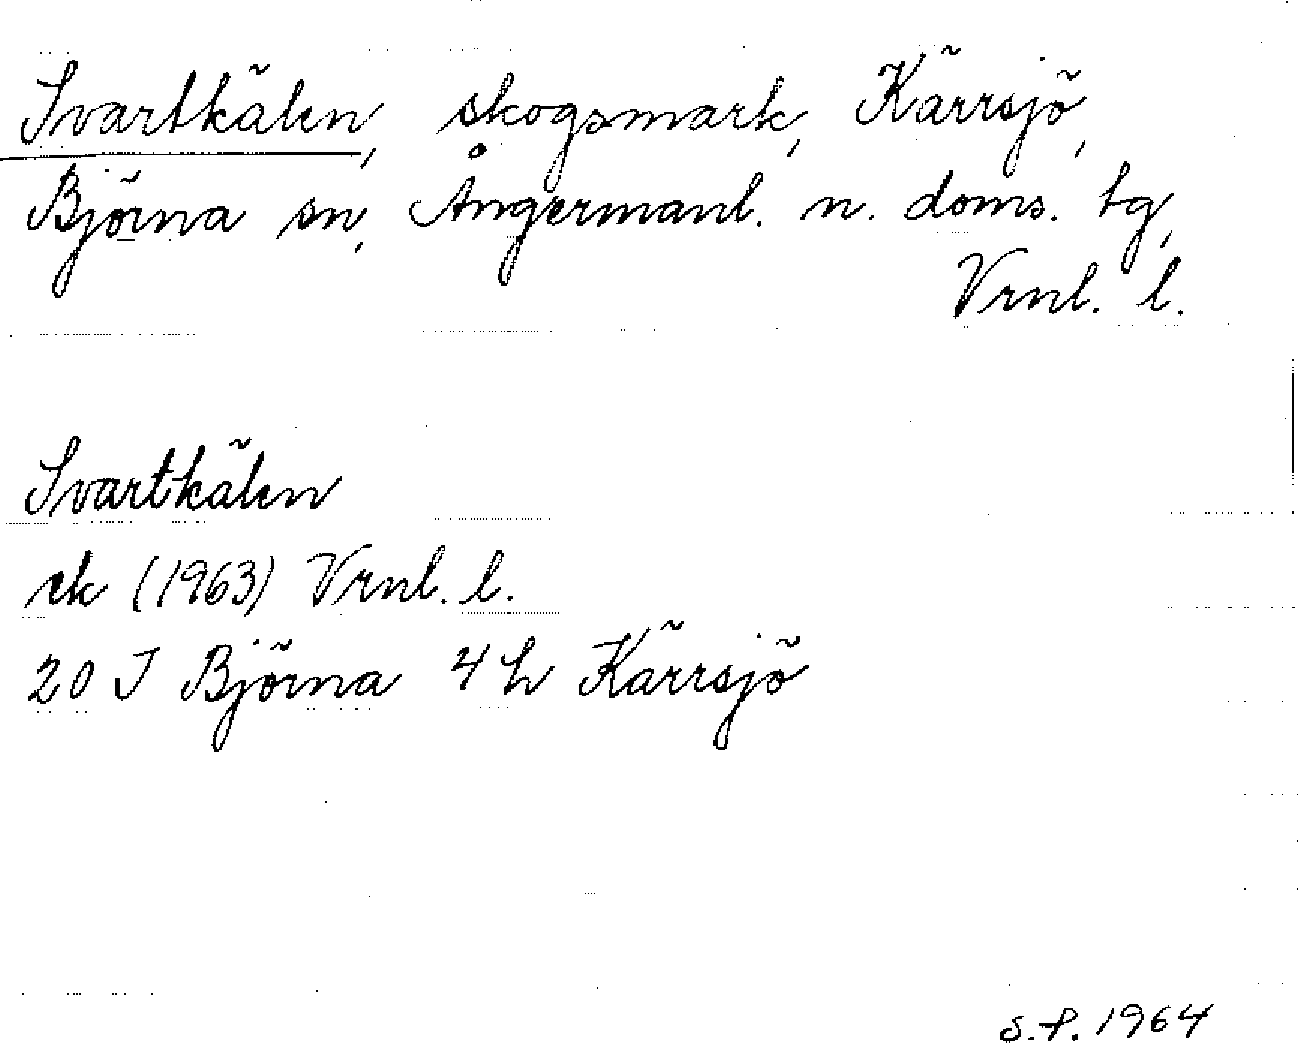 Svartkälen, skogsmark, Kärrsjö,
Björna sn, Ångermanl. n. doms. tg,
Vrnl. l.
Svartkälen
ek (1963) Vrnl. l.
20 J Björna 4 h Kärrsjö
S.P. 1964